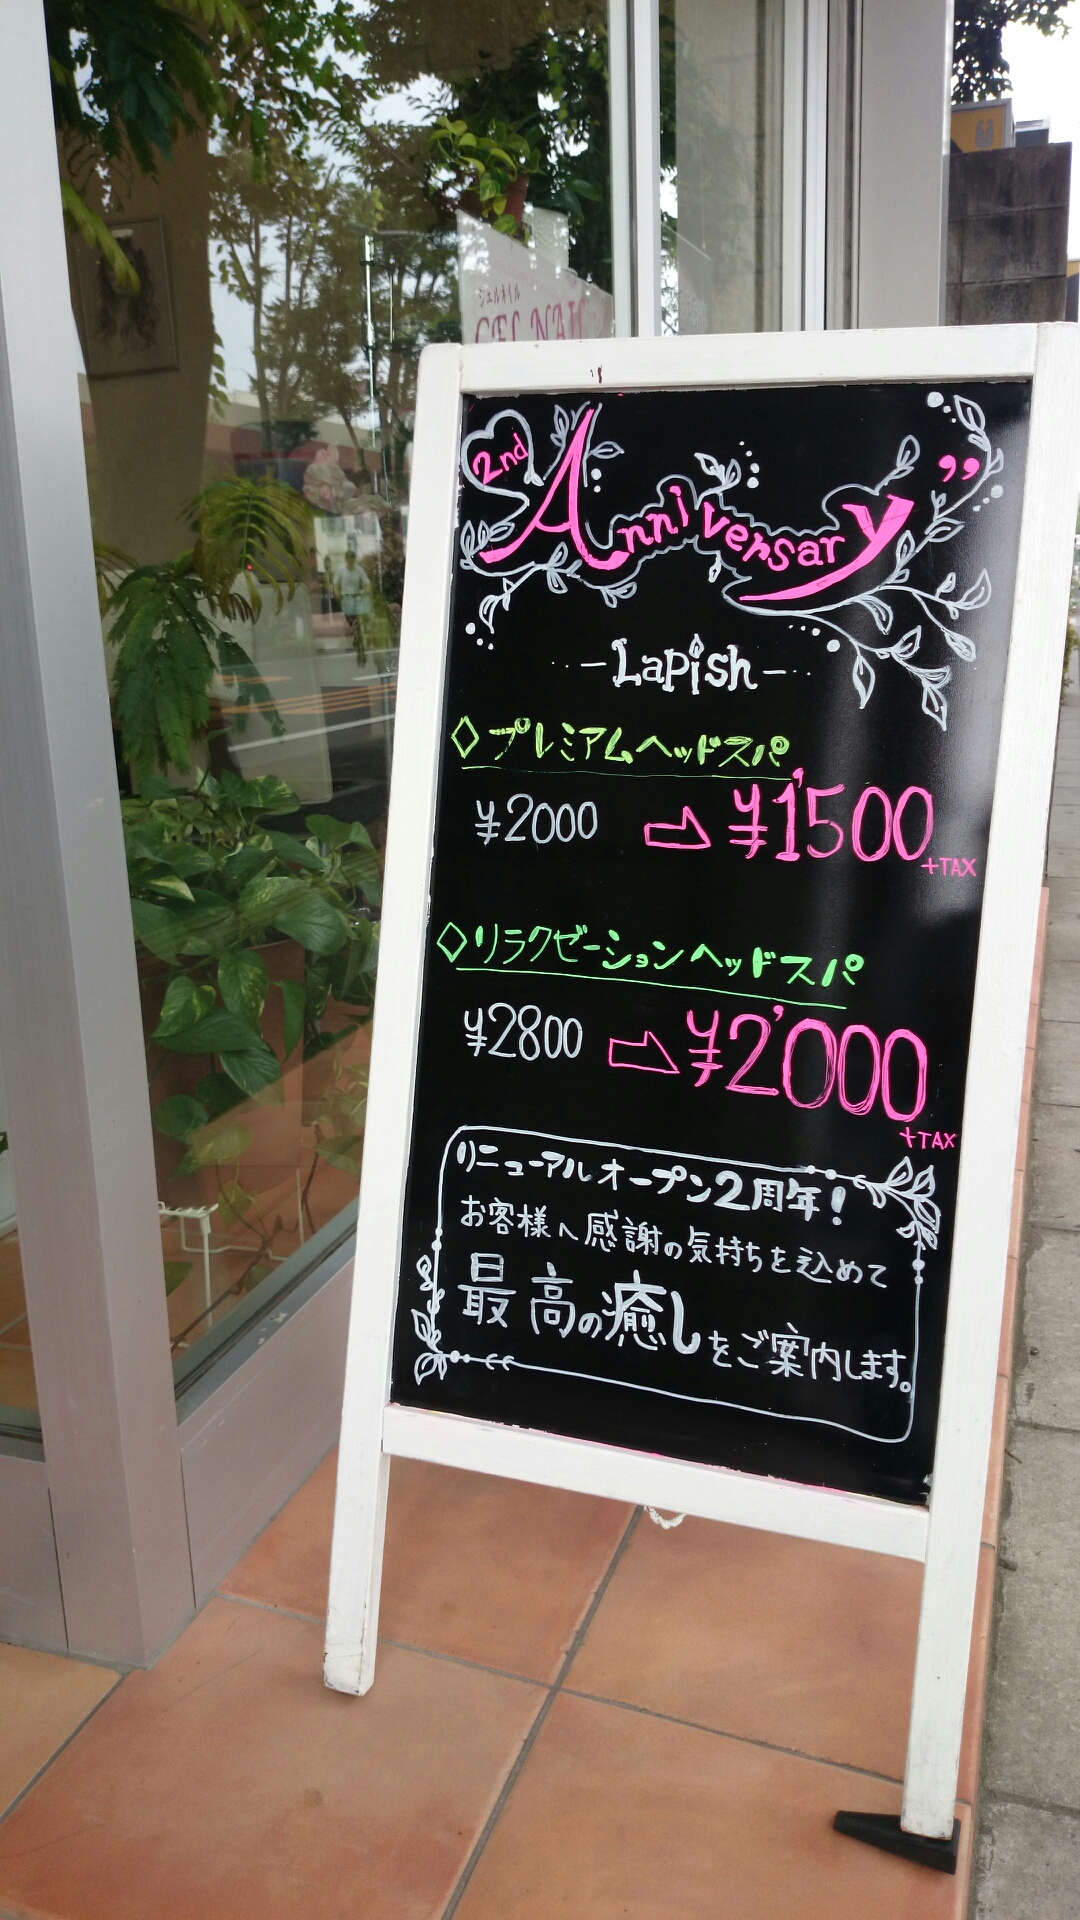 ジェルネイル
GEL NAIL
2nd Anniversary"
-Lapish-
◇プレミアムヘッドスパ
¥2000 ⇨ ¥1'500
+TAX
◇リラクゼーションヘッドスパ
¥2800 ⇨ ¥2'000
+TAX
リニューアルオープン2周年!
お客様へ感謝の気持ちを込めて
最高の癒しをご案内します。